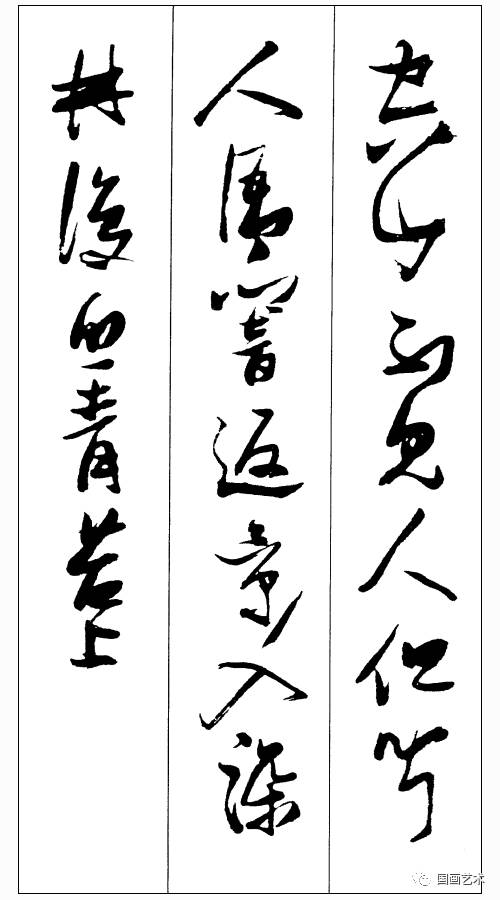 空山不見人但聞
人語響返景入深
林復照青苔上
国画艺术